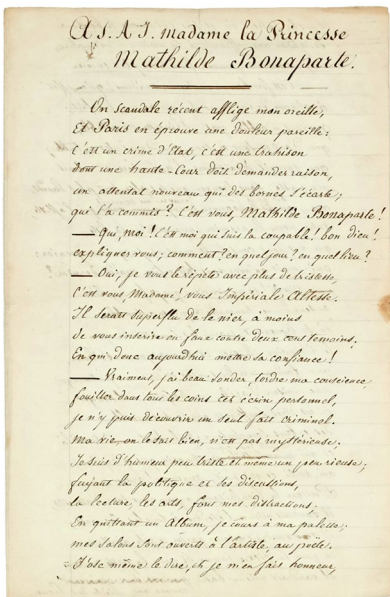 A S. A. I. madame la Princesse
Mathilde Bonaparte.
Un scandale récent afflige mon oreille,
Et Paris en éprouve une douleur pareille:
C'est un crime d'Etat, c'est une trahison
dont une haute-Cour doit demander raison,
un attentat nouveau qui des bornes s'écarte;
qui l'a commis? C'est vous, Mathilde Bonaparte!
— Qui, moi! C'est moi qui suis la coupable! bon dieu!
expliquez vous; comment? en quel jour? en quel lieu?
— Oui, je vous le répète avec plus de tristesse,
C'est vous, Madame! vous Impériale Altesse.
Il serait superflu de le nier, à moins
de vous inscrire en faux contre deux cens temoins.
En qui donc aujourd'hui mettre sa confiance!
— Vraiment, j'ai beau sonder, tordre ma conscience,
fouiller dans tous les coins cet écrin personnel,
je n'y puis découvrir un seul fait criminel.
Ma vie, on le sait bien, n'est pas mystérieuse;
Je suis d'humeur peu triste et même un peu rieuse;
fuyant la politique et ses discussions,
la lecture, les arts, font mes distractions.
En quittant un Album, je cours à ma palette;
mes salons sont ouverts à l'artiste, au poète.
J'ose même le dire, et je m'en fais honneur,